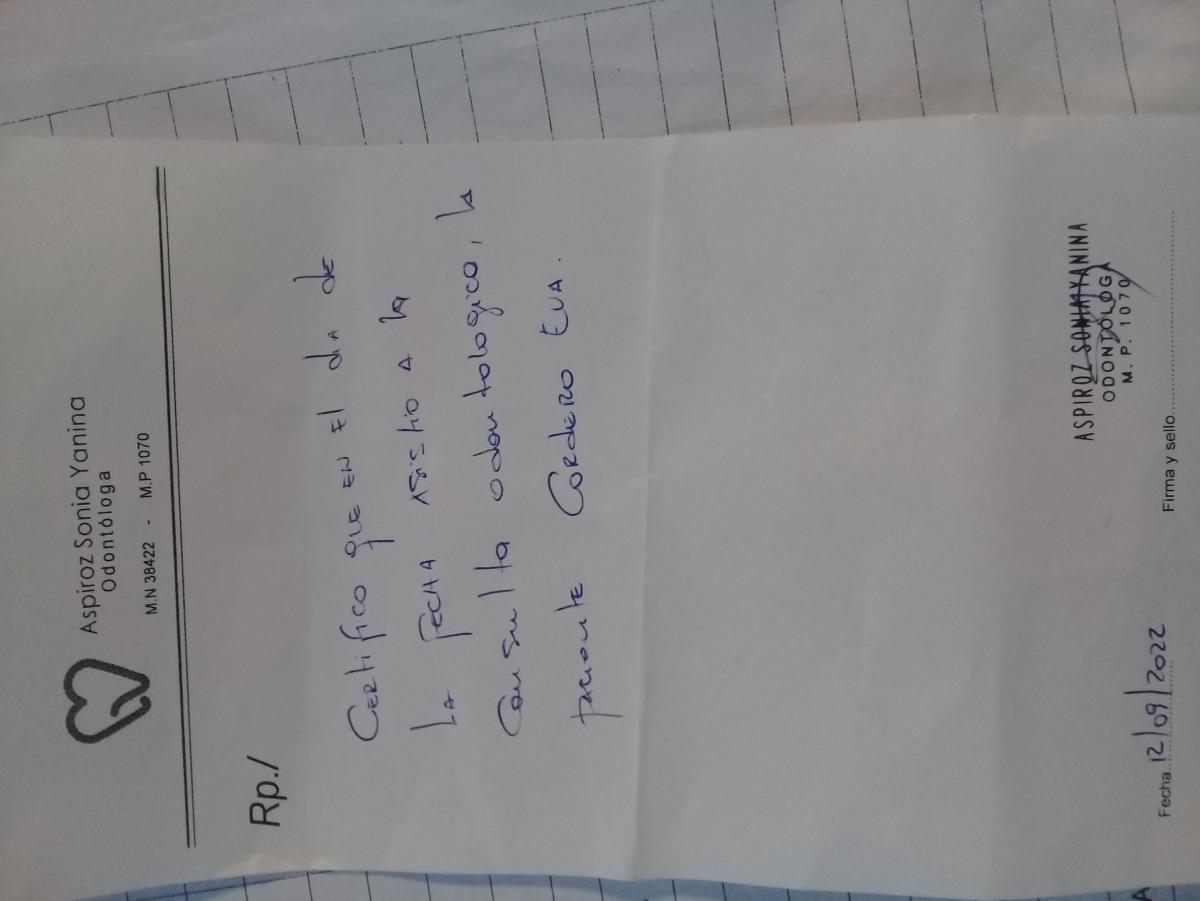 Aspiroz Sonia Yanina
Odontóloga
M.N 38422 - M.P 1070
Rp./
Certifico que en el dia de
la fecha asistio a la
consulta odontologico, la
paciente Cordero Eva.
ASPIROZ SONIA YANINA
ODONTOLOGA
M. P. 1070
Fecha 12/09/2022 Firma y sello
A